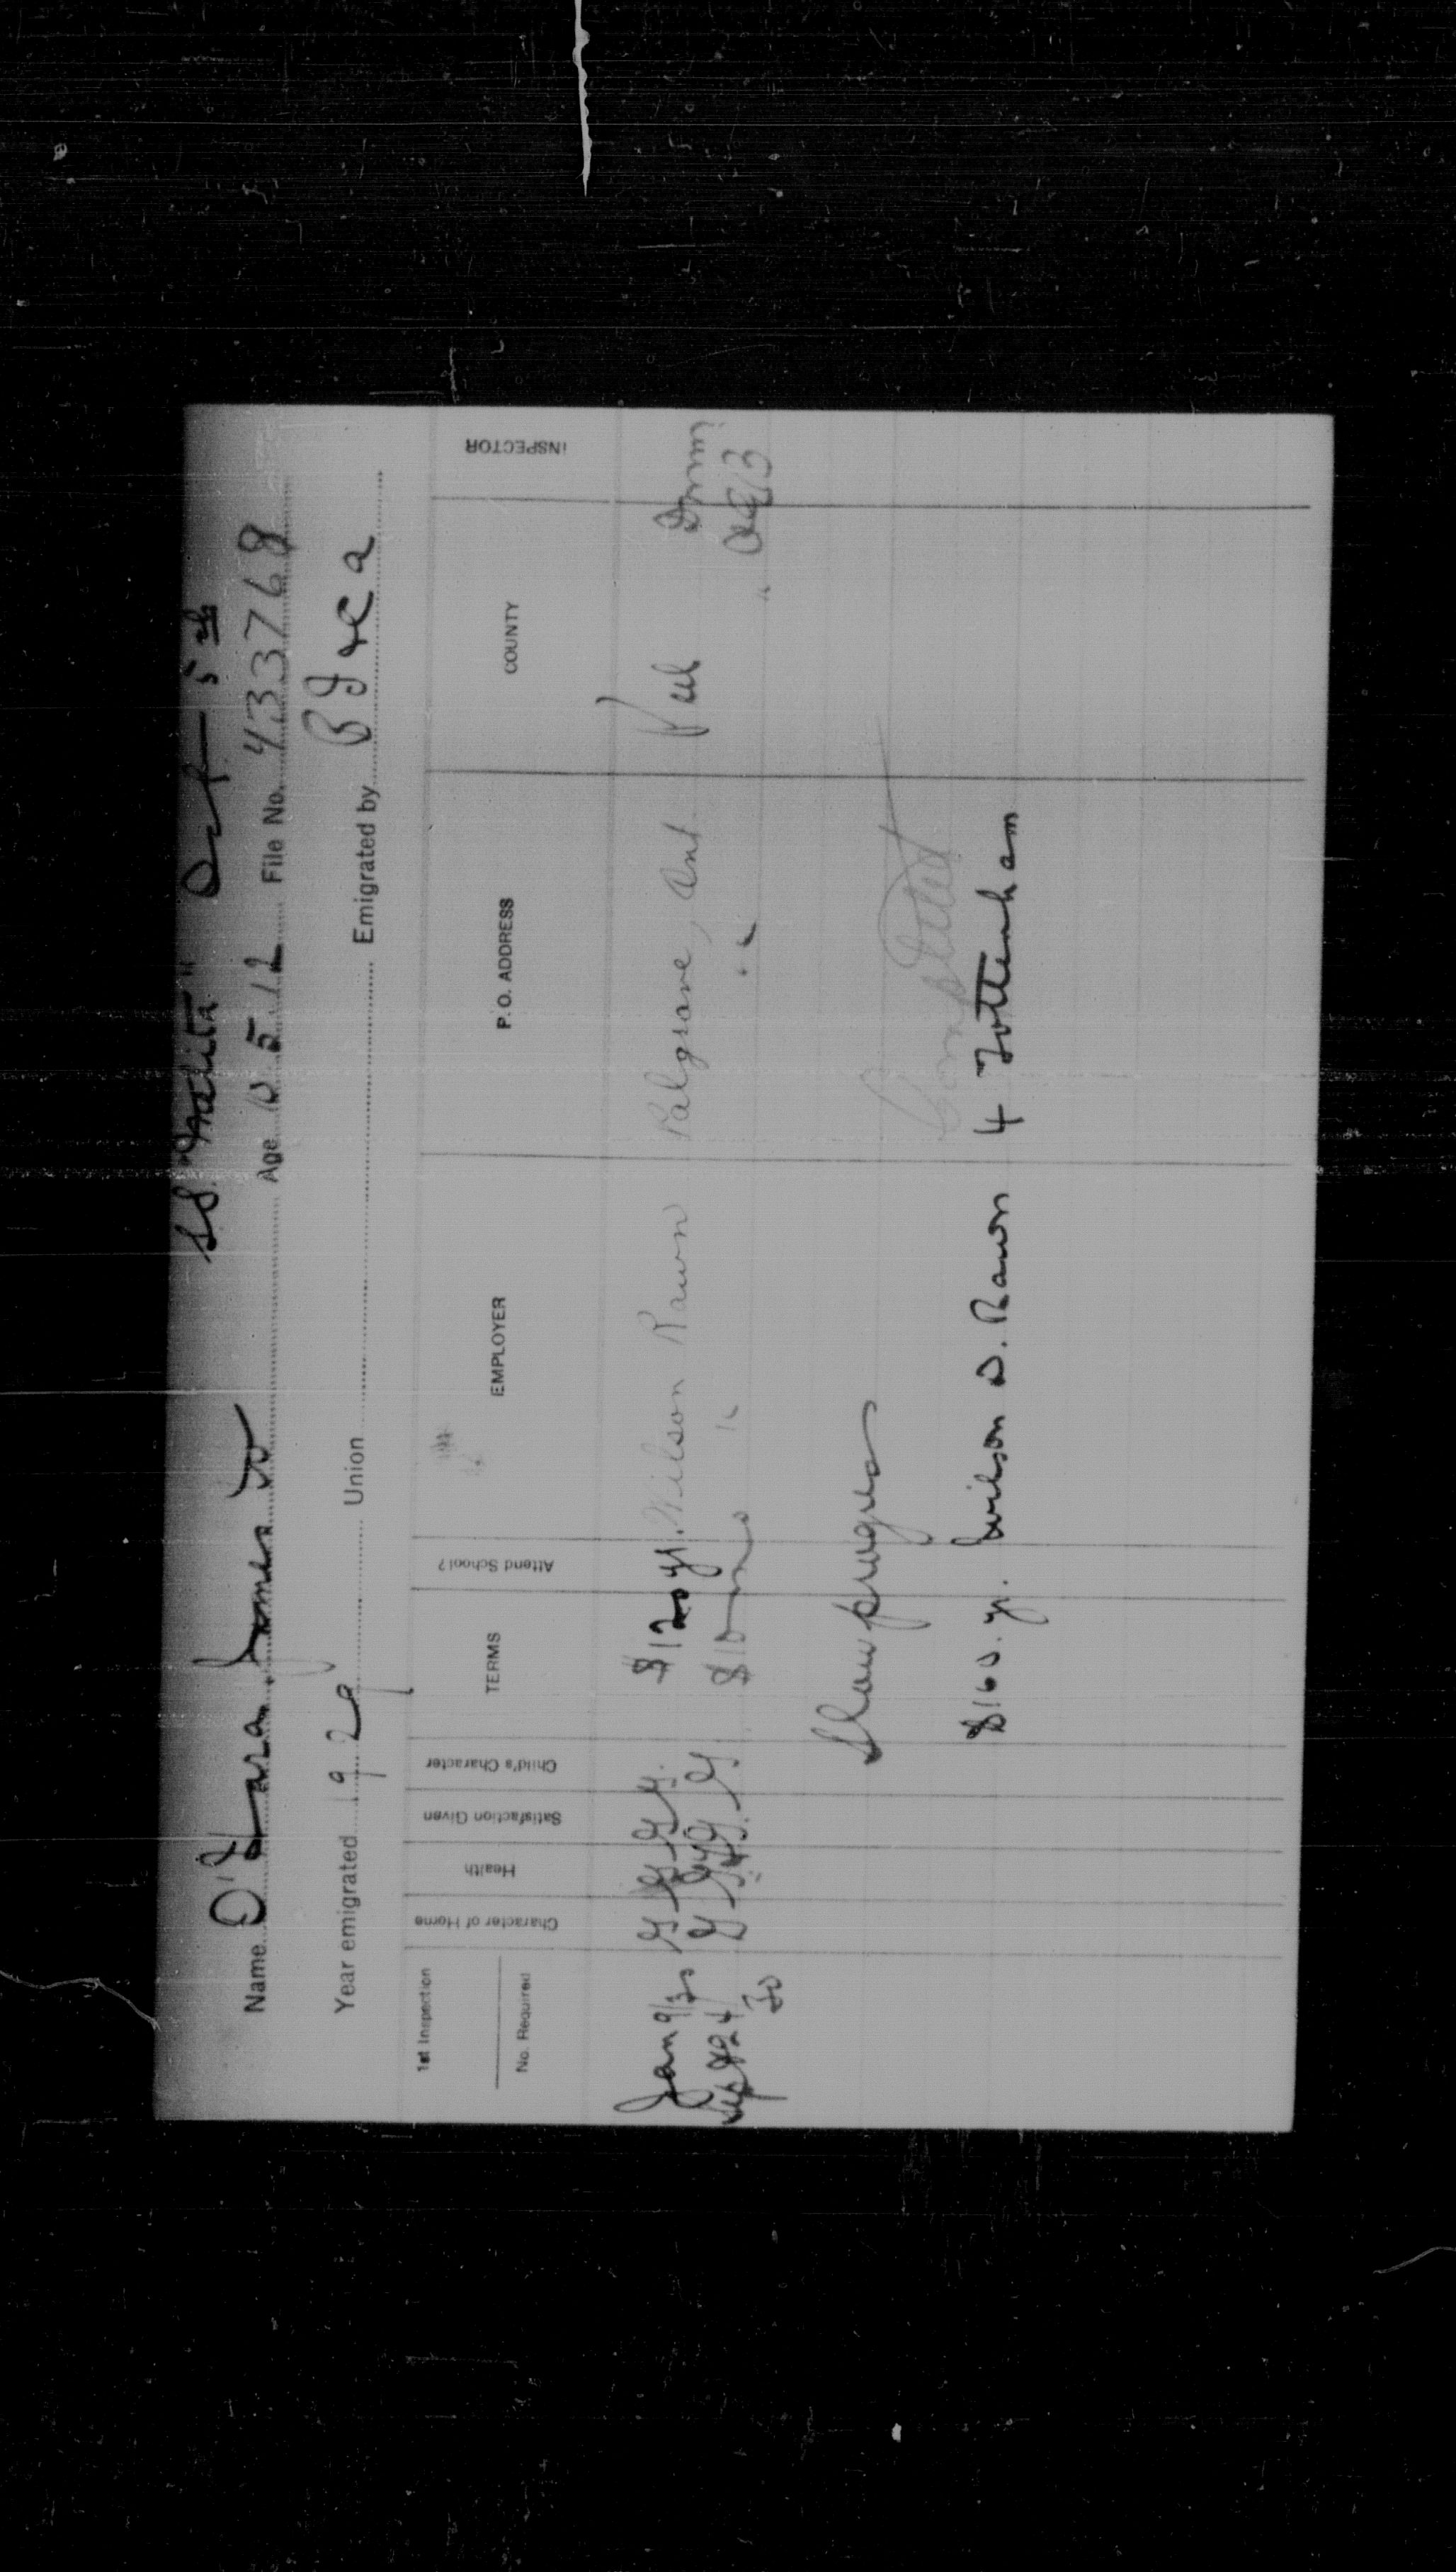 S.S. "Melita" Oct 5th
Name O'Hara, James Age 15 12 File No. 433768
Year emigrated 1929 Union Emigrated by B I & C A
1st Inspection
No. Required
Character of Home Health Satisfaction Given Child's Character TERMS Attend School? EMPLOYER P. O. ADDRESS COUNTY INSPECTOR
Jan 9/30 G G G G. $120 yr. Wilson Rawn Palgrave, Ont. Peel
Sep 24/30 G G G G $10 " " "
Slow progress
Completed
$160. yr. Wilson D. Rawn 4 Tottenham